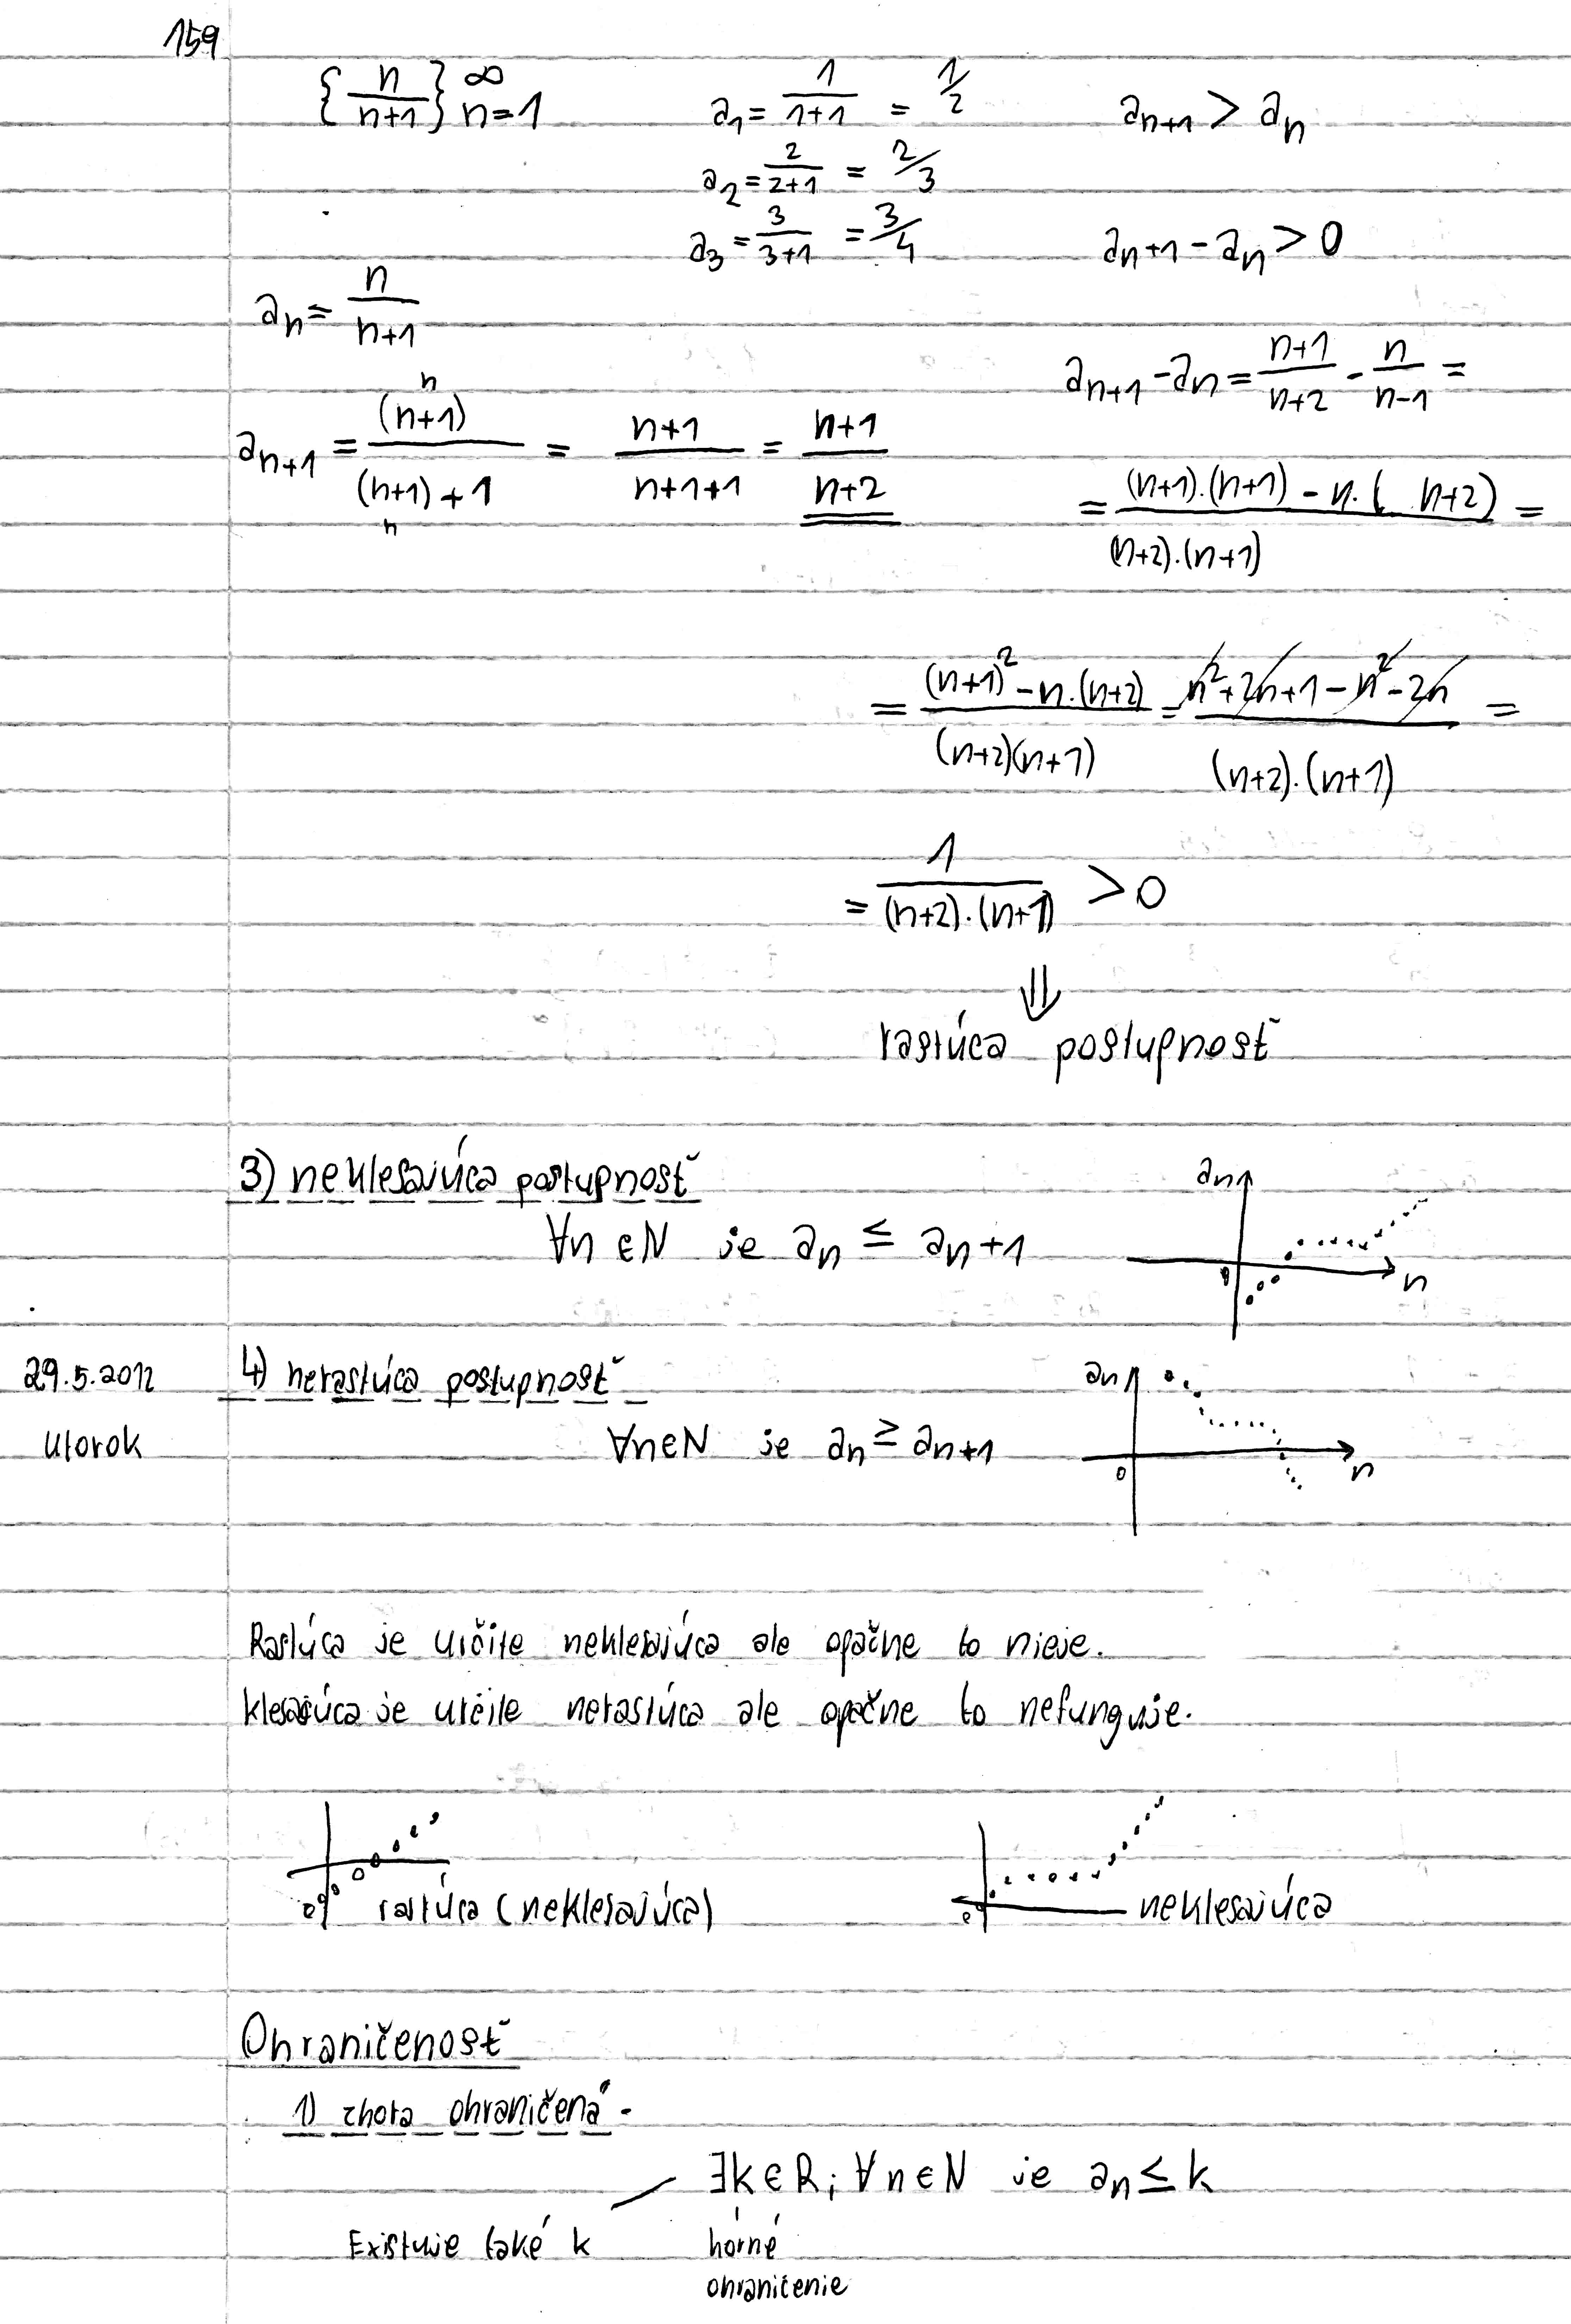 159
{n/(n+1)} ∞ n=1
a₁ = 1/(1+1) = 1/2
aₙ₊₁ > aₙ
a₂ = 2/(2+1) = 2/3
a₃ = 3/(3+1) = 3/4
aₙ₊₁ - aₙ > 0
aₙ = n/(n+1)
aₙ₊₁ - aₙ = (n+1)/(n+2) - n/(n-1) =
n
aₙ₊₁ = (n+1)/((n+1)+1) = (n+1)/(n+1+1) = (n+1)/(n+2)
n
= ((n+1).(n+1) - n.( n+2))/((n+2).(n+1)) =
= ((n+1)² - n.(n+2))/((n+2)(n+1)) = (n²+2n+1-n²-2n)/((n+2).(n+1)) =
= 1/((n+2).(n+1)) > 0
⇓
rastúca postupnosť
3) neklesajúca postupnosť
∀n ∈ N je aₙ ≤ aₙ₊₁
aₙ
0
n
29.5.2012
Utorok
4) nerastúca postupnosť
∀n∈N je aₙ ≥ aₙ₊₁
aₙ
0
n
Rastúca je určite neklesajúca ale opačne to nieje.
klesajúca je určite nerastúca ale opačne to nefunguje.
0
rastúca (neklesajúca)
0
neklesajúca
Ohraničenosť
1) zhora ohraničená -
∃k∈R; ∀n∈N je aₙ ≤ k
Existuje také k
horné
ohraničenie